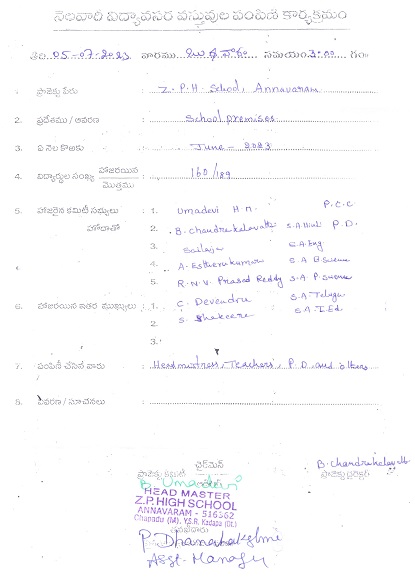 నెలవారీ విద్యావసర వస్తువుల పంపిణీ కార్యక్రమం
తేది 05-07-2023 వారము బుధవారం సమయం 3:00 గం
1. ప్రాజెక్టు పేరు : Z.P.H School, Annavaram
2. ప్రదేశము / ఆవరణ : School premises
3. ఏ నెల కొఱకు : June - 2023
4. విద్యార్థుల సంఖ్య హాజరయిన / మొత్తము : 160/189
5. హాజరైన కమిటీ సభ్యులు హోదాతో : 1. Umadevi H.M. P.C.C
2. B. Chandrakalavathi S.A Hindi P.D.
3. Sailaja S.A Eng
4. A. Estherukumari S A B.Science
5. R.N.V. Prasad Reddy S.A P.Science
6. హాజరయిన ఇతర ముఖ్యులు : 1. C. Devendra S.A Telugu
2. S. Shakeera S.A T.Ed.
3.
7. పంపిణీ చేసిన వారు : Headmistress, Teachers, P.D and others
8. వివరణ / సూచనలు :
ఛైర్‌మెన్
ప్రాజెక్టు కమిటీ
B. Umadevi
B. Chandrakalavathi
ప్రాజెక్టు డైరెక్టర్
HEAD MASTER
Z.P. HIGH SCHOOL
ANNAVARAM - 516362
Chapadu (M), Y.S.R. Kadapa (Dt.)
P. Dhanalakshmi
Asst. Manager